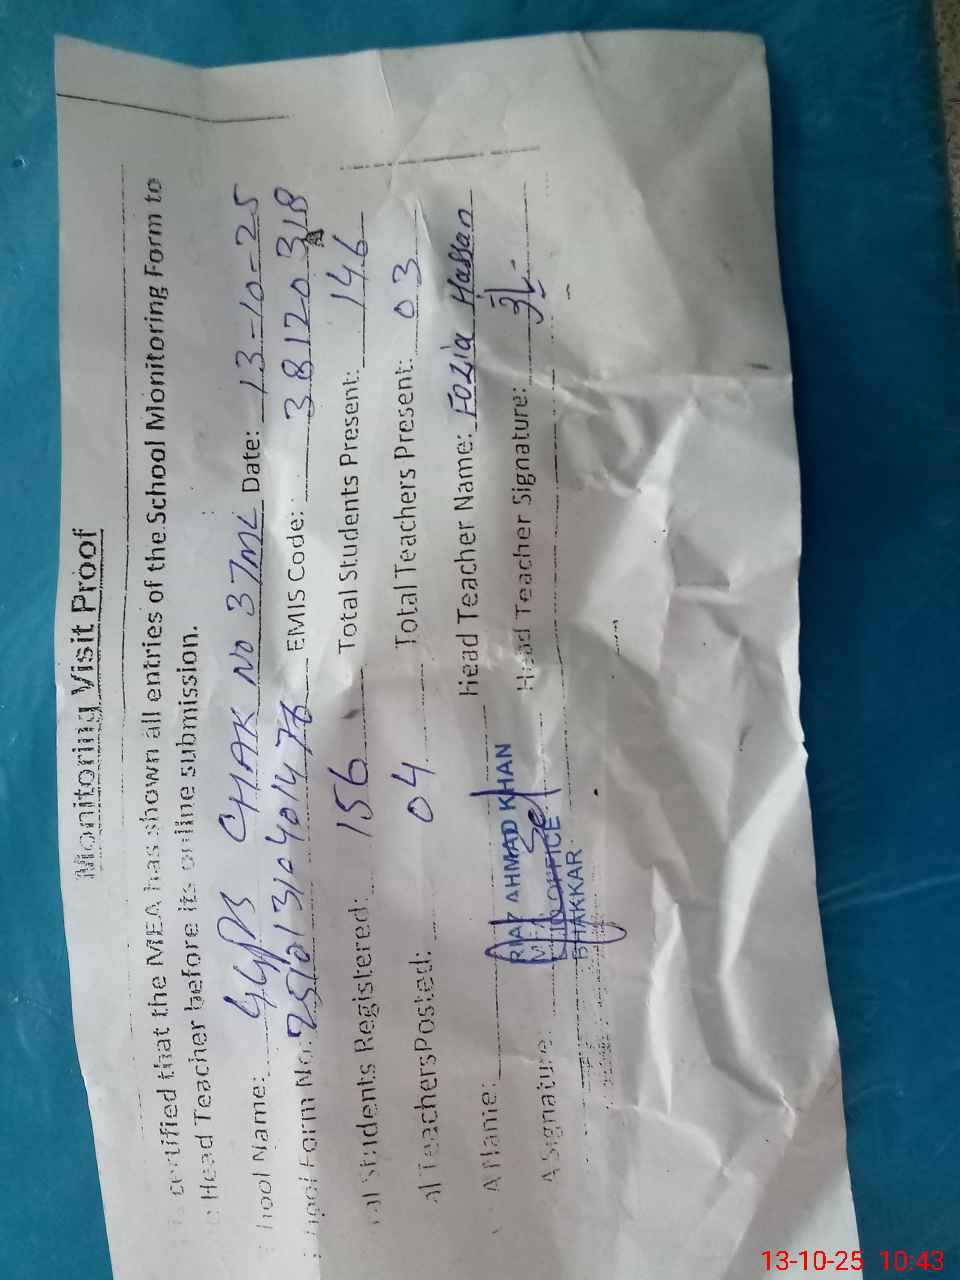 Monitoring Visit Proof
certified that the MEA has shown all entries of the School Monitoring Form to
Head Teacher before its online submission.
hool Name: GGPS CHAK No 37ML Date: 13-10-25
hool Form No: EMIS Code: 38120318
al Students Registered: 156 Total Students Present: 146
al Teachers Posted: 04 Total Teachers Present: 03
A Name: RIAZ AHMAD KHAN Head Teacher Name: Fozia Hassan
MEA OFFICE
BHAKKAR
A Signature: Head Teacher Signature:
13-10-25 10:43